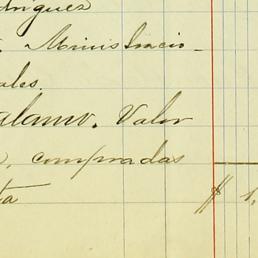 odriguez
Ministracio-
ales.
alamo. Valor
compradas
ta
$ 1,